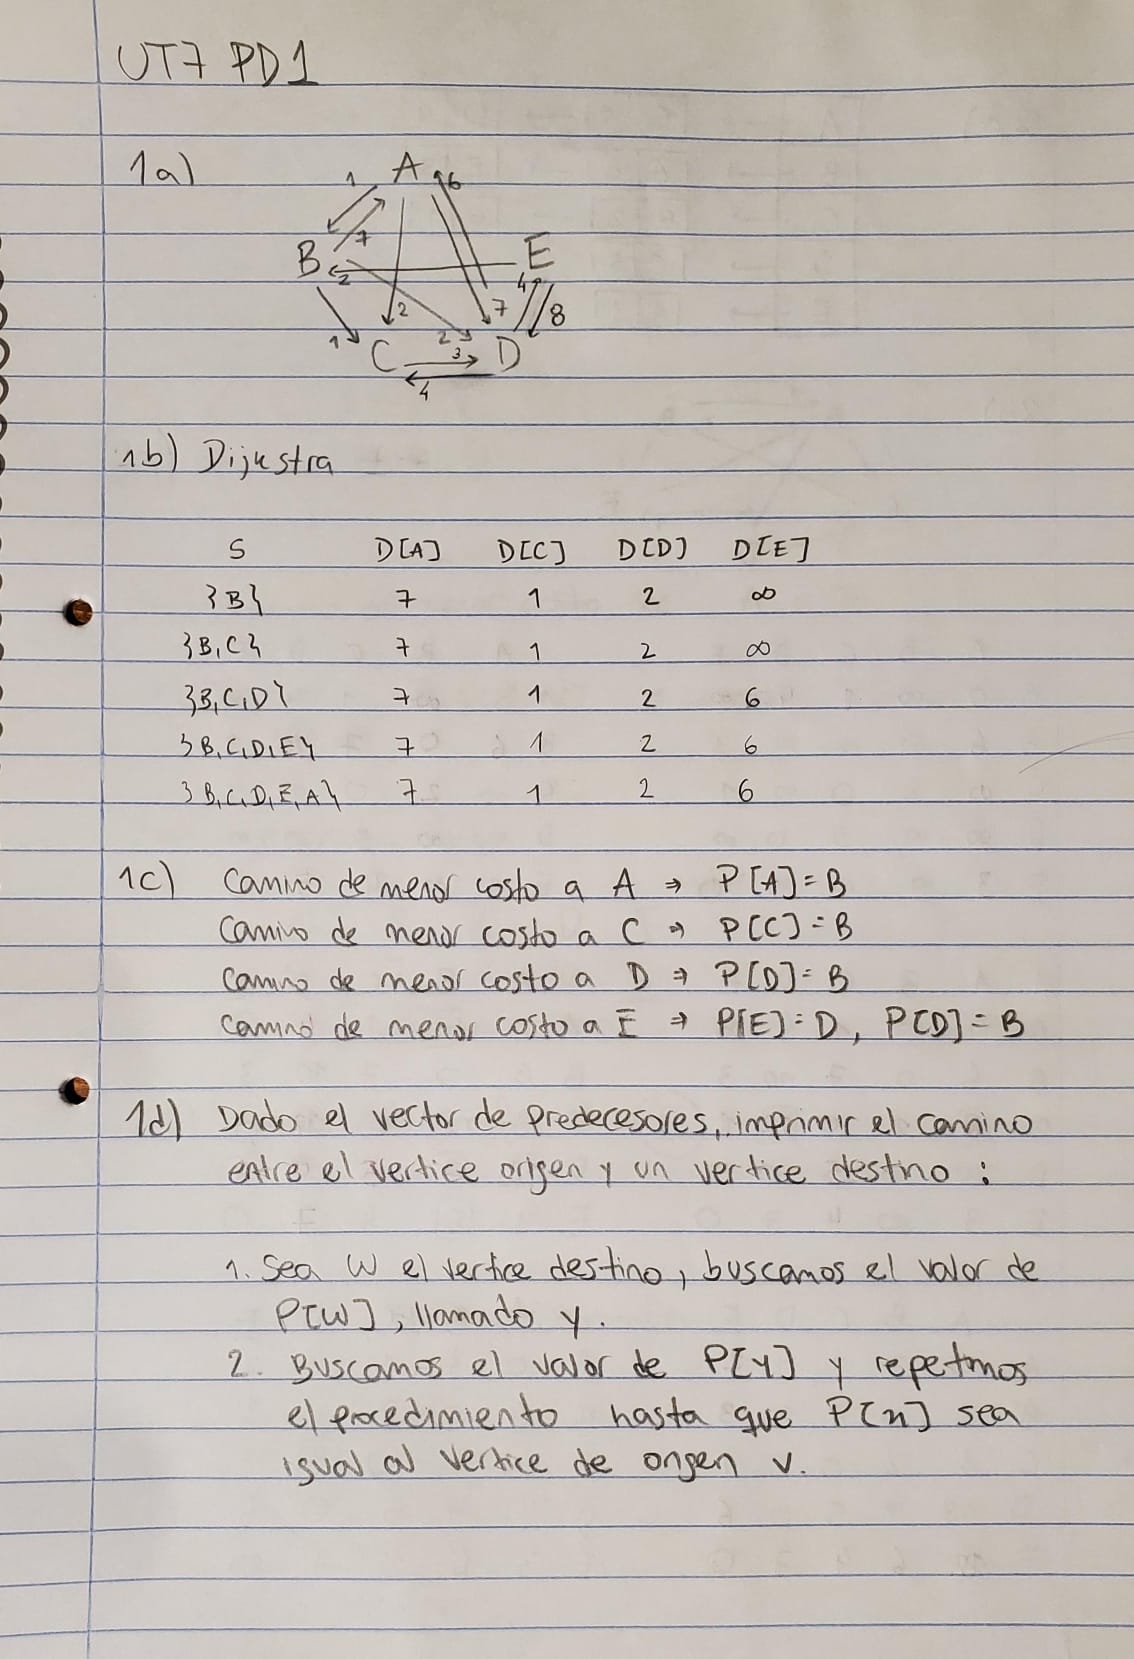 UT7 PD1
1a)
1 A 6
7
B E
2 4
2 7 8
1 C 2 3 D
4
1b) Dijkstra
S D[A] D[C] D[D] D[E]
{B} 7 1 2 ∞
{B,C} 7 1 2 ∞
{B,C,D} 7 1 2 6
{B,C,D,E} 7 1 2 6
{B,C,D,E,A} 7 1 2 6
1c) Camino de menor costo a A ⇒ P[A]=B
Camino de menor costo a C ⇒ P[C]=B
Camino de menor costo a D ⇒ P[D]=B
Camino de menor costo a E ⇒ P[E]=D, P[D]=B
1d) Dado el vector de predecesores, imprimir el camino
entre el vertice origen y un vertice destino :
1. Sea W el vertice destino, buscamos el valor de
P[W], llamado y.
2. Buscamos el valor de P[Y] y repetimos
el procedimiento hasta que P[n] sea
igual al vertice de origen v.